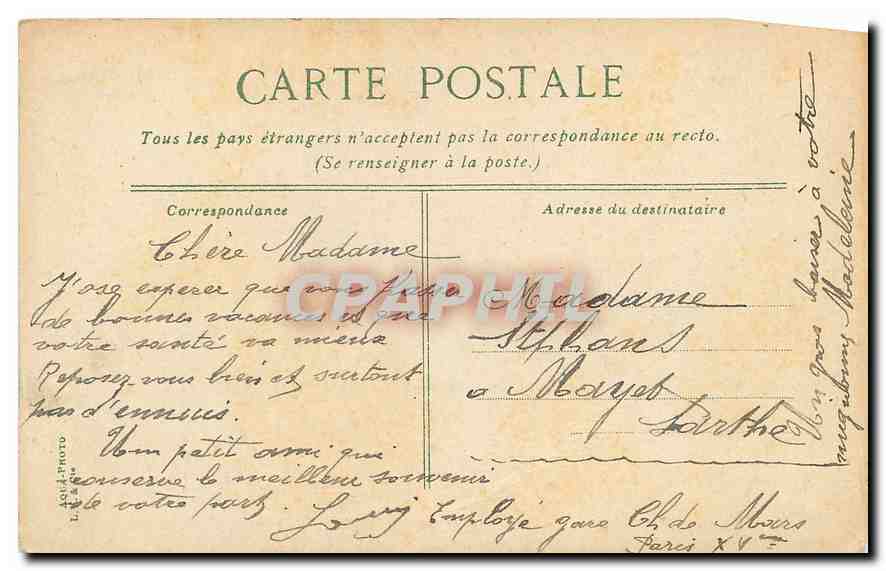 CARTE POSTALE
Tous les pays étrangers n'acceptent pas la correspondance au recto.
(Se renseigner à la poste.)
Correspondance
Adresse du destinataire
Chère Madame
J'ose esperer que vous
de bonnes vacances et que
votre santé va mieux
Reposez-vous bien et surtout
pas d'ennuis.
Un petit ami qui
conserve le meilleur souvenir
de votre part.
Employé gare Ch de Mars
Paris XV eme
Madame
Stphans
a Mayet
Sarthe
Un gros baiser à votre
Madeleine
AQUA-PHOTO
CPAPHIL